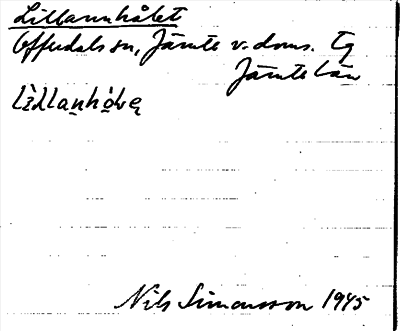 Lillannhålet
Offerdals sn, Jämte v. doms. tg
Jämtelän
Nils Simonsson 1945